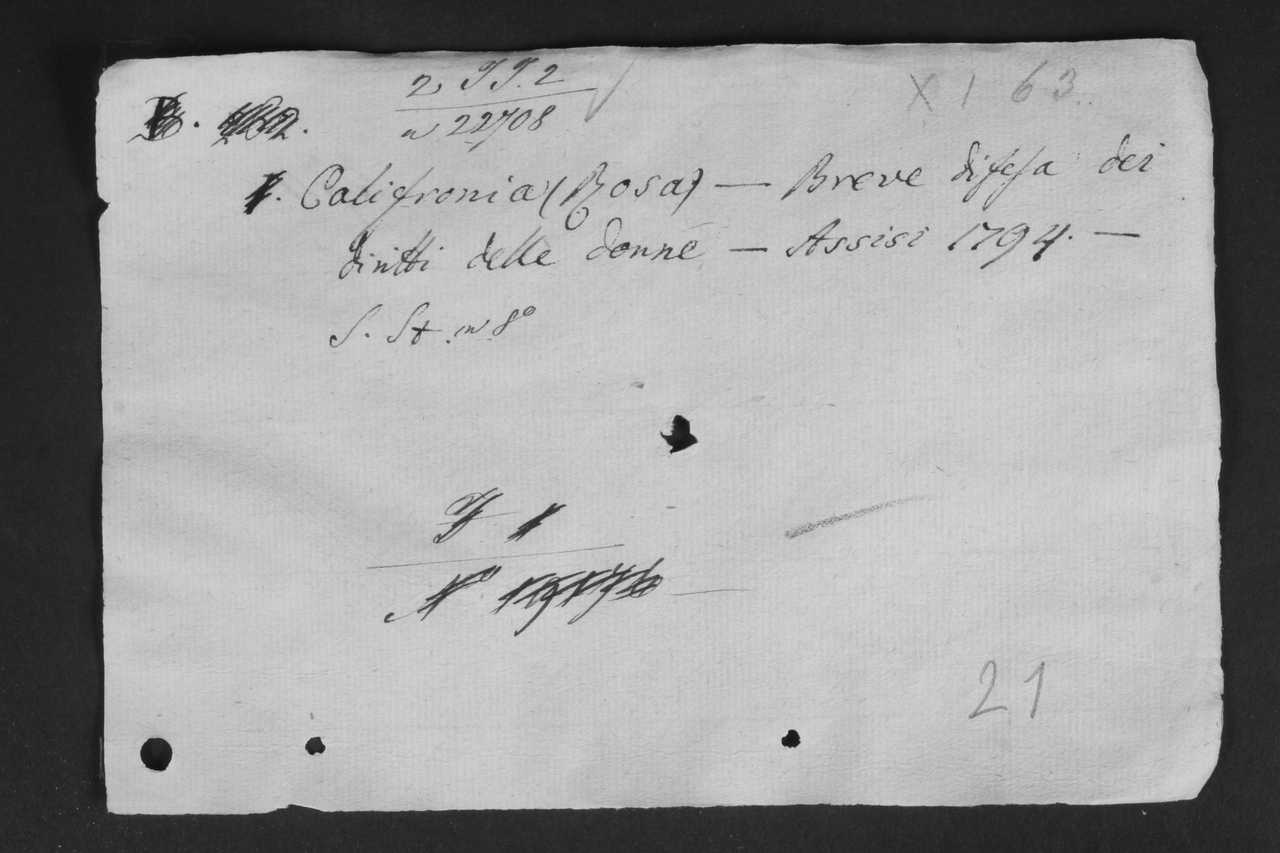 2, J J. 2
n 22708
X 1 63
Califronia (Rosa) — Breve difesa dei
diritti delle donne — Assisi 1794. —
S. St. in 8º
21